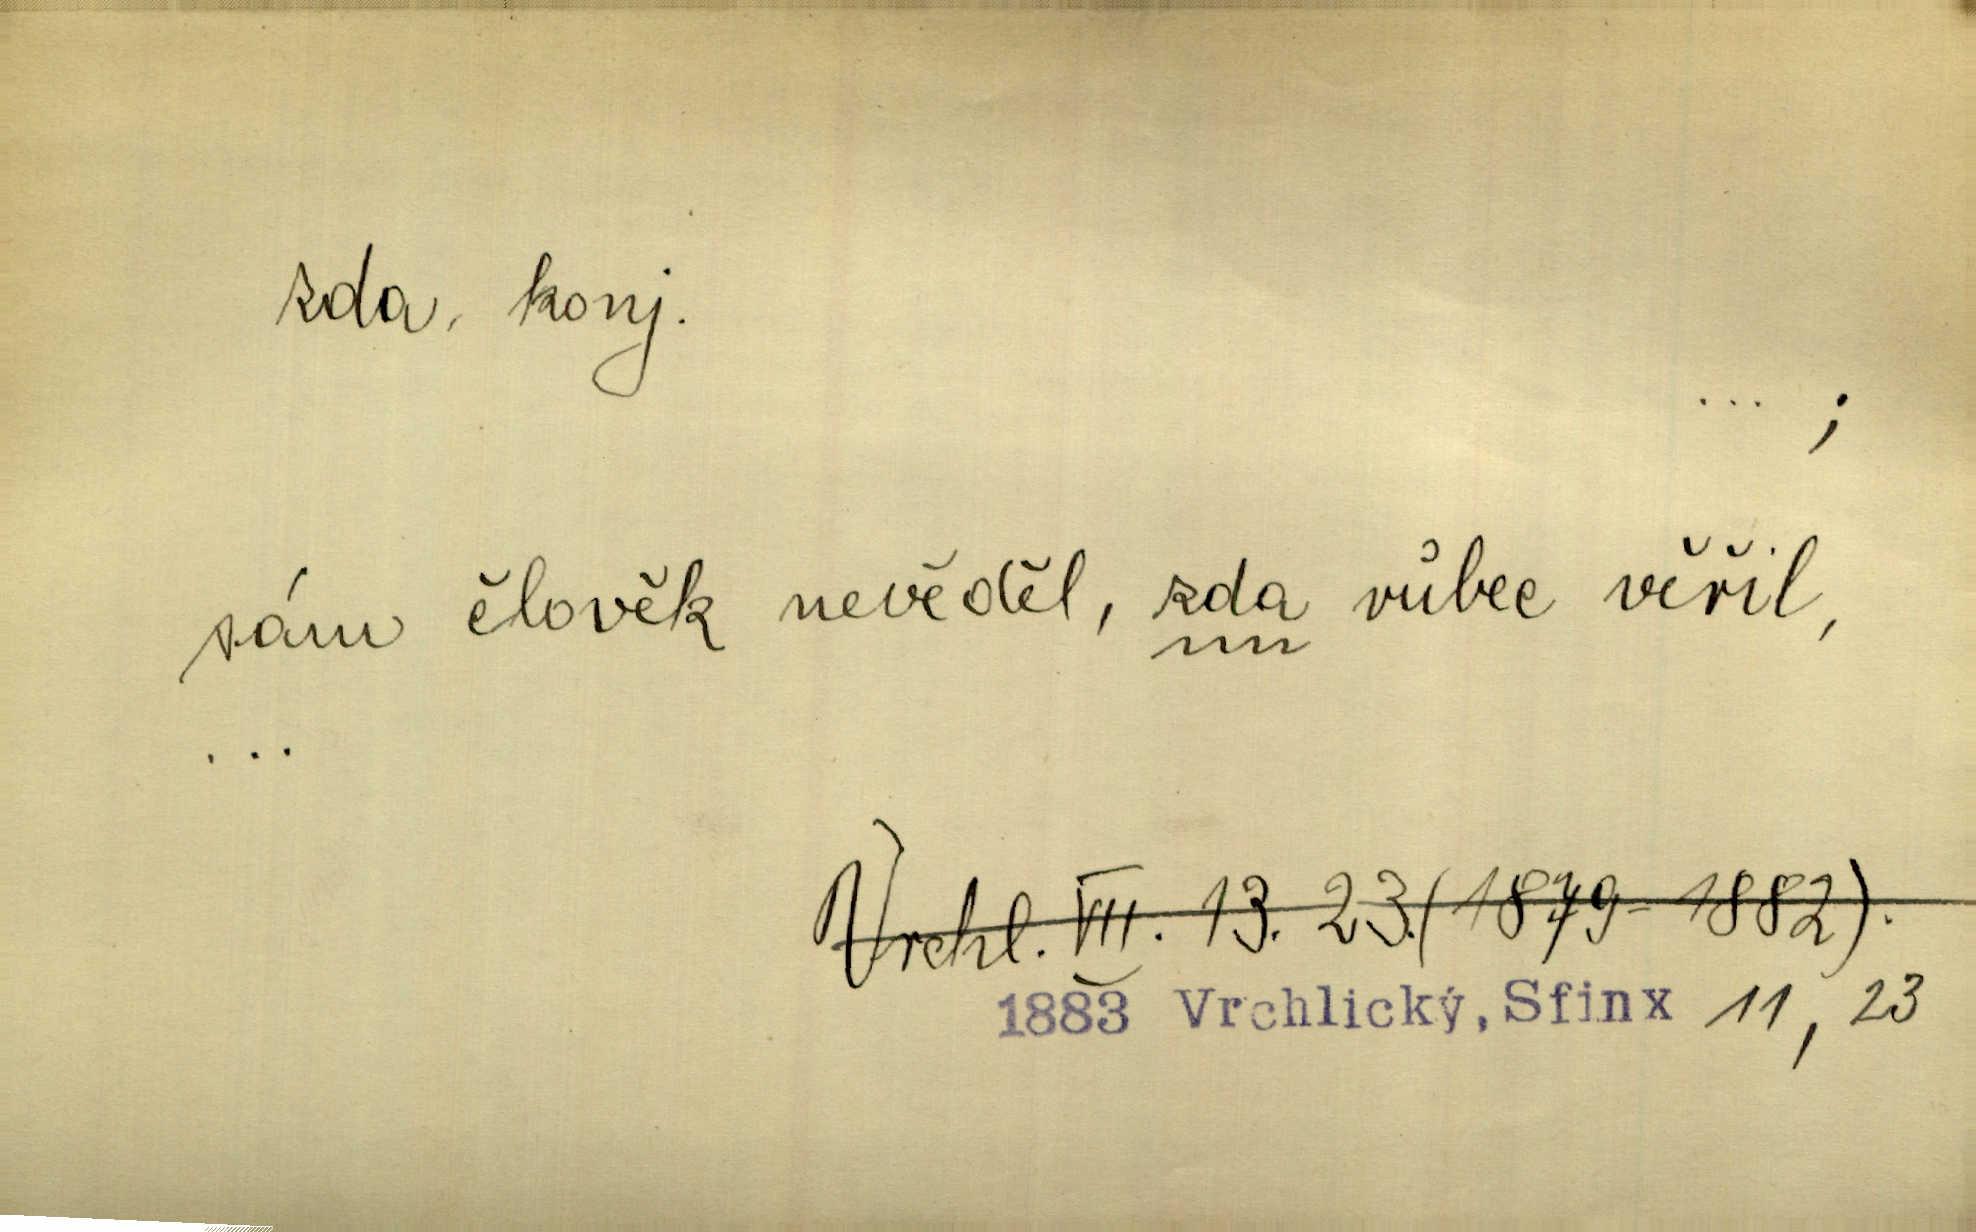 zda, konj.
... ;
sám člověk nevěděl, zda vůbec věřil,
...
Vrchl. VII. 13. 23. (1879-1882).
1883 Vrchlický, Sfinx 11, 23